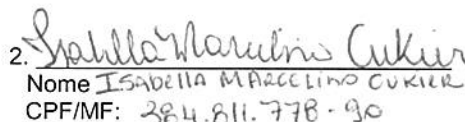 2. Isabella Marcelino Cukier
Nome ISABELLA MARCELINO CUKIER
CPF/MF: 384.811.778-90